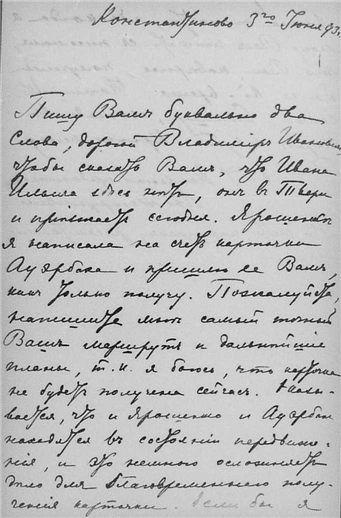 Константиново 3го Июня 93.
Пишу Вамъ буквально два
слова, дорогой Владимiръ Ивановичъ,
чтобы сказать Вамъ, что Ивана
Ильича здѣсь нѣтъ, онъ въ Твери
и прiѣзжаетъ сегодня. Ярошенко
я написала на счетъ карточки
Ауэрбаха и пришлю ее Вамъ,
какъ только получу. Пожалуйста,
напишите мнѣ самый точный
Вашъ маршрутъ и дальнѣйшiе
планы, т. к. я боюсь, что карточка
не будетъ получена сейчасъ. Оказы-
вается, что и Ярошенко и Ауэрбах
находятся въ состоянiи передвиже-
нiя, и это немного осложняетъ
дѣло для благовременнаго полу-
ченiя карточки. Если бы я